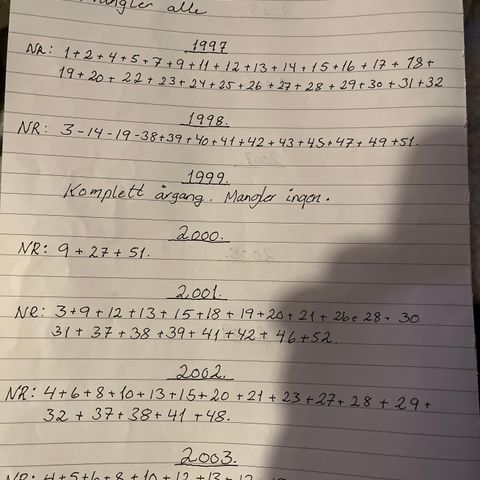 Mangler alle
1997
NR: 1+2+4+5+7+9+11+12+13+14+15+16+17+18+
19+20+22+23+24+25+26+27+28+29+30+31+32
1998.
NR: 3-14-19-38+39+40+41+42+43+45+47+49+51.
1999.
Komplett årgang. Mangler ingen.
2000.
NR: 9+27+51.
2001.
NR: 3+9+12+13+15+18+19+20+21+26+28+30
31+37+38+39+41+42+46+52.
2002.
NR: 4+6+8+10+13+15+20+21+23+27+28+29+
32+37+38+41+48.
2003.
NR: 4+5+6+8+10+12+13+